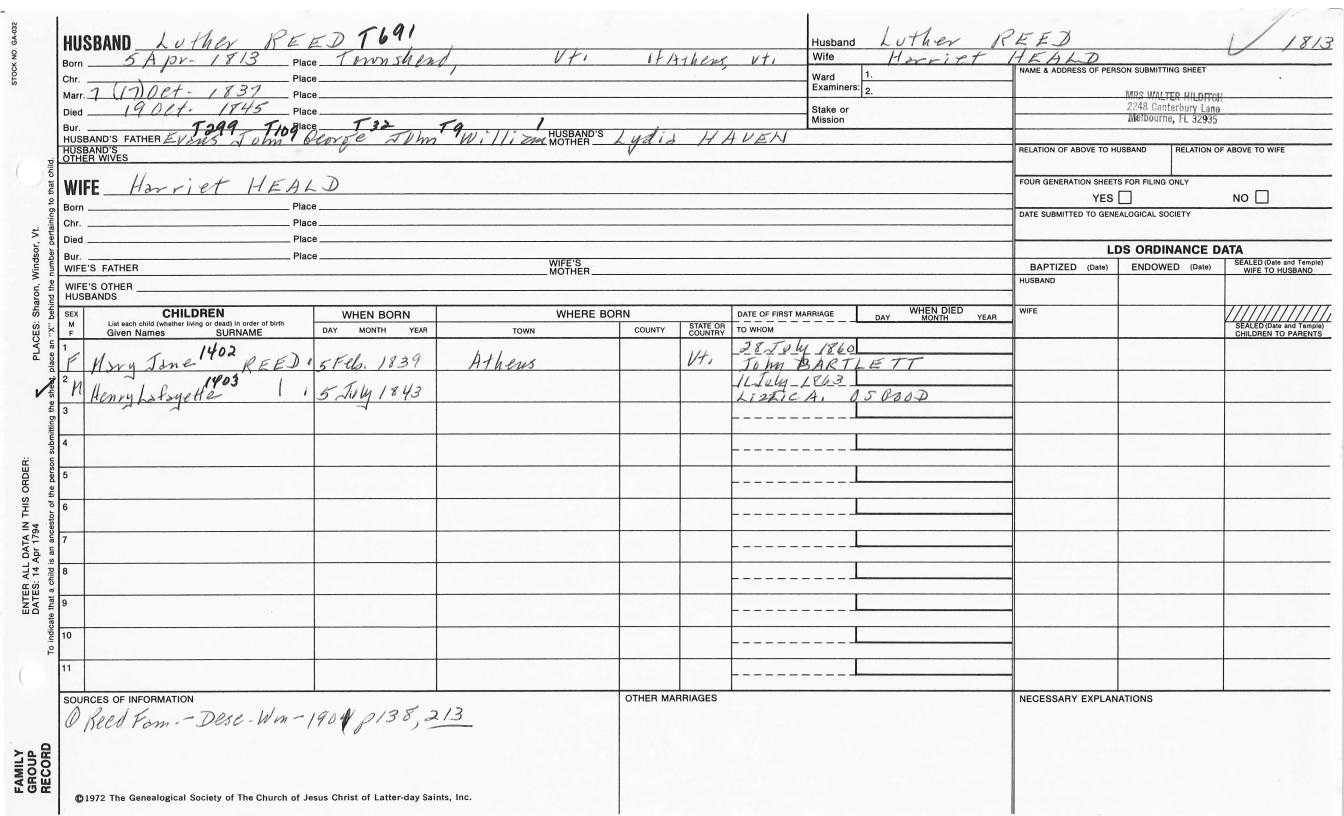 STOCK NO GA-032
HUSBAND Luther REED T691
Born 5 Apr- 1813 Place Townshend, Vt. It Athens, Vt.
Chr. Place
Marr. 7 (17) Oct- 1837 Place
Died 19 Oct. 1845 Place
Bur. Place
T299 T109 T32 T9 1
HUSBAND'S FATHER Evans John George John William HUSBAND'S MOTHER Lydia HAVEN
HUSBAND'S OTHER WIVES
Husband Luther REED 1813
Wife Harriet HEALD
Ward Examiners: 1.
2.
Stake or Mission
NAME & ADDRESS OF PERSON SUBMITTING SHEET
MRS WALTER HILDITCH
2248 Canterbury Lane
Melbourne, FL 32935
RELATION OF ABOVE TO HUSBAND RELATION OF ABOVE TO WIFE
FOUR GENERATION SHEETS FOR FILING ONLY
YES NO
DATE SUBMITTED TO GENEALOGICAL SOCIETY
WIFE Harriet HEALD
Born Place
Chr. Place
Died Place
Bur. Place
WIFE'S FATHER WIFE'S MOTHER
WIFE'S OTHER HUSBANDS
LDS ORDINANCE DATA
BAPTIZED (Date) ENDOWED (Date) SEALED (Date and Temple) WIFE TO HUSBAND
HUSBAND
WIFE
SEALED (Date and Temple) CHILDREN TO PARENTS
SEX M F
CHILDREN
List each child (whether living or dead) in order of birth
Given Names SURNAME
WHEN BORN
DAY MONTH YEAR
WHERE BORN
TOWN COUNTY STATE OR COUNTRY
DATE OF FIRST MARRIAGE
TO WHOM
WHEN DIED
DAY MONTH YEAR
1 F Mary Jane 1402 REED 5 Feb. 1839 Athens Vt. 28 July 1860
John BARTLETT
2 M Henry Lafayette 1403 5 July 1843 11 July 1863
Lizzie A. OSGOOD
3
4
5
6
7
8
9
10
11
SOURCES OF INFORMATION
① Reed Fam.-Desc-Wm-1901 p138, 213
OTHER MARRIAGES
NECESSARY EXPLANATIONS
©1972 The Genealogical Society of The Church of Jesus Christ of Latter-day Saints, Inc.
FAMILY GROUP RECORD
ENTER ALL DATA IN THIS ORDER:
DATES: 14 Apr 1794
PLACES: Sharon, Windsor, Vt.
To indicate that a child is an ancestor of the person submitting the sheet, place an "X" behind the number pertaining to that child.